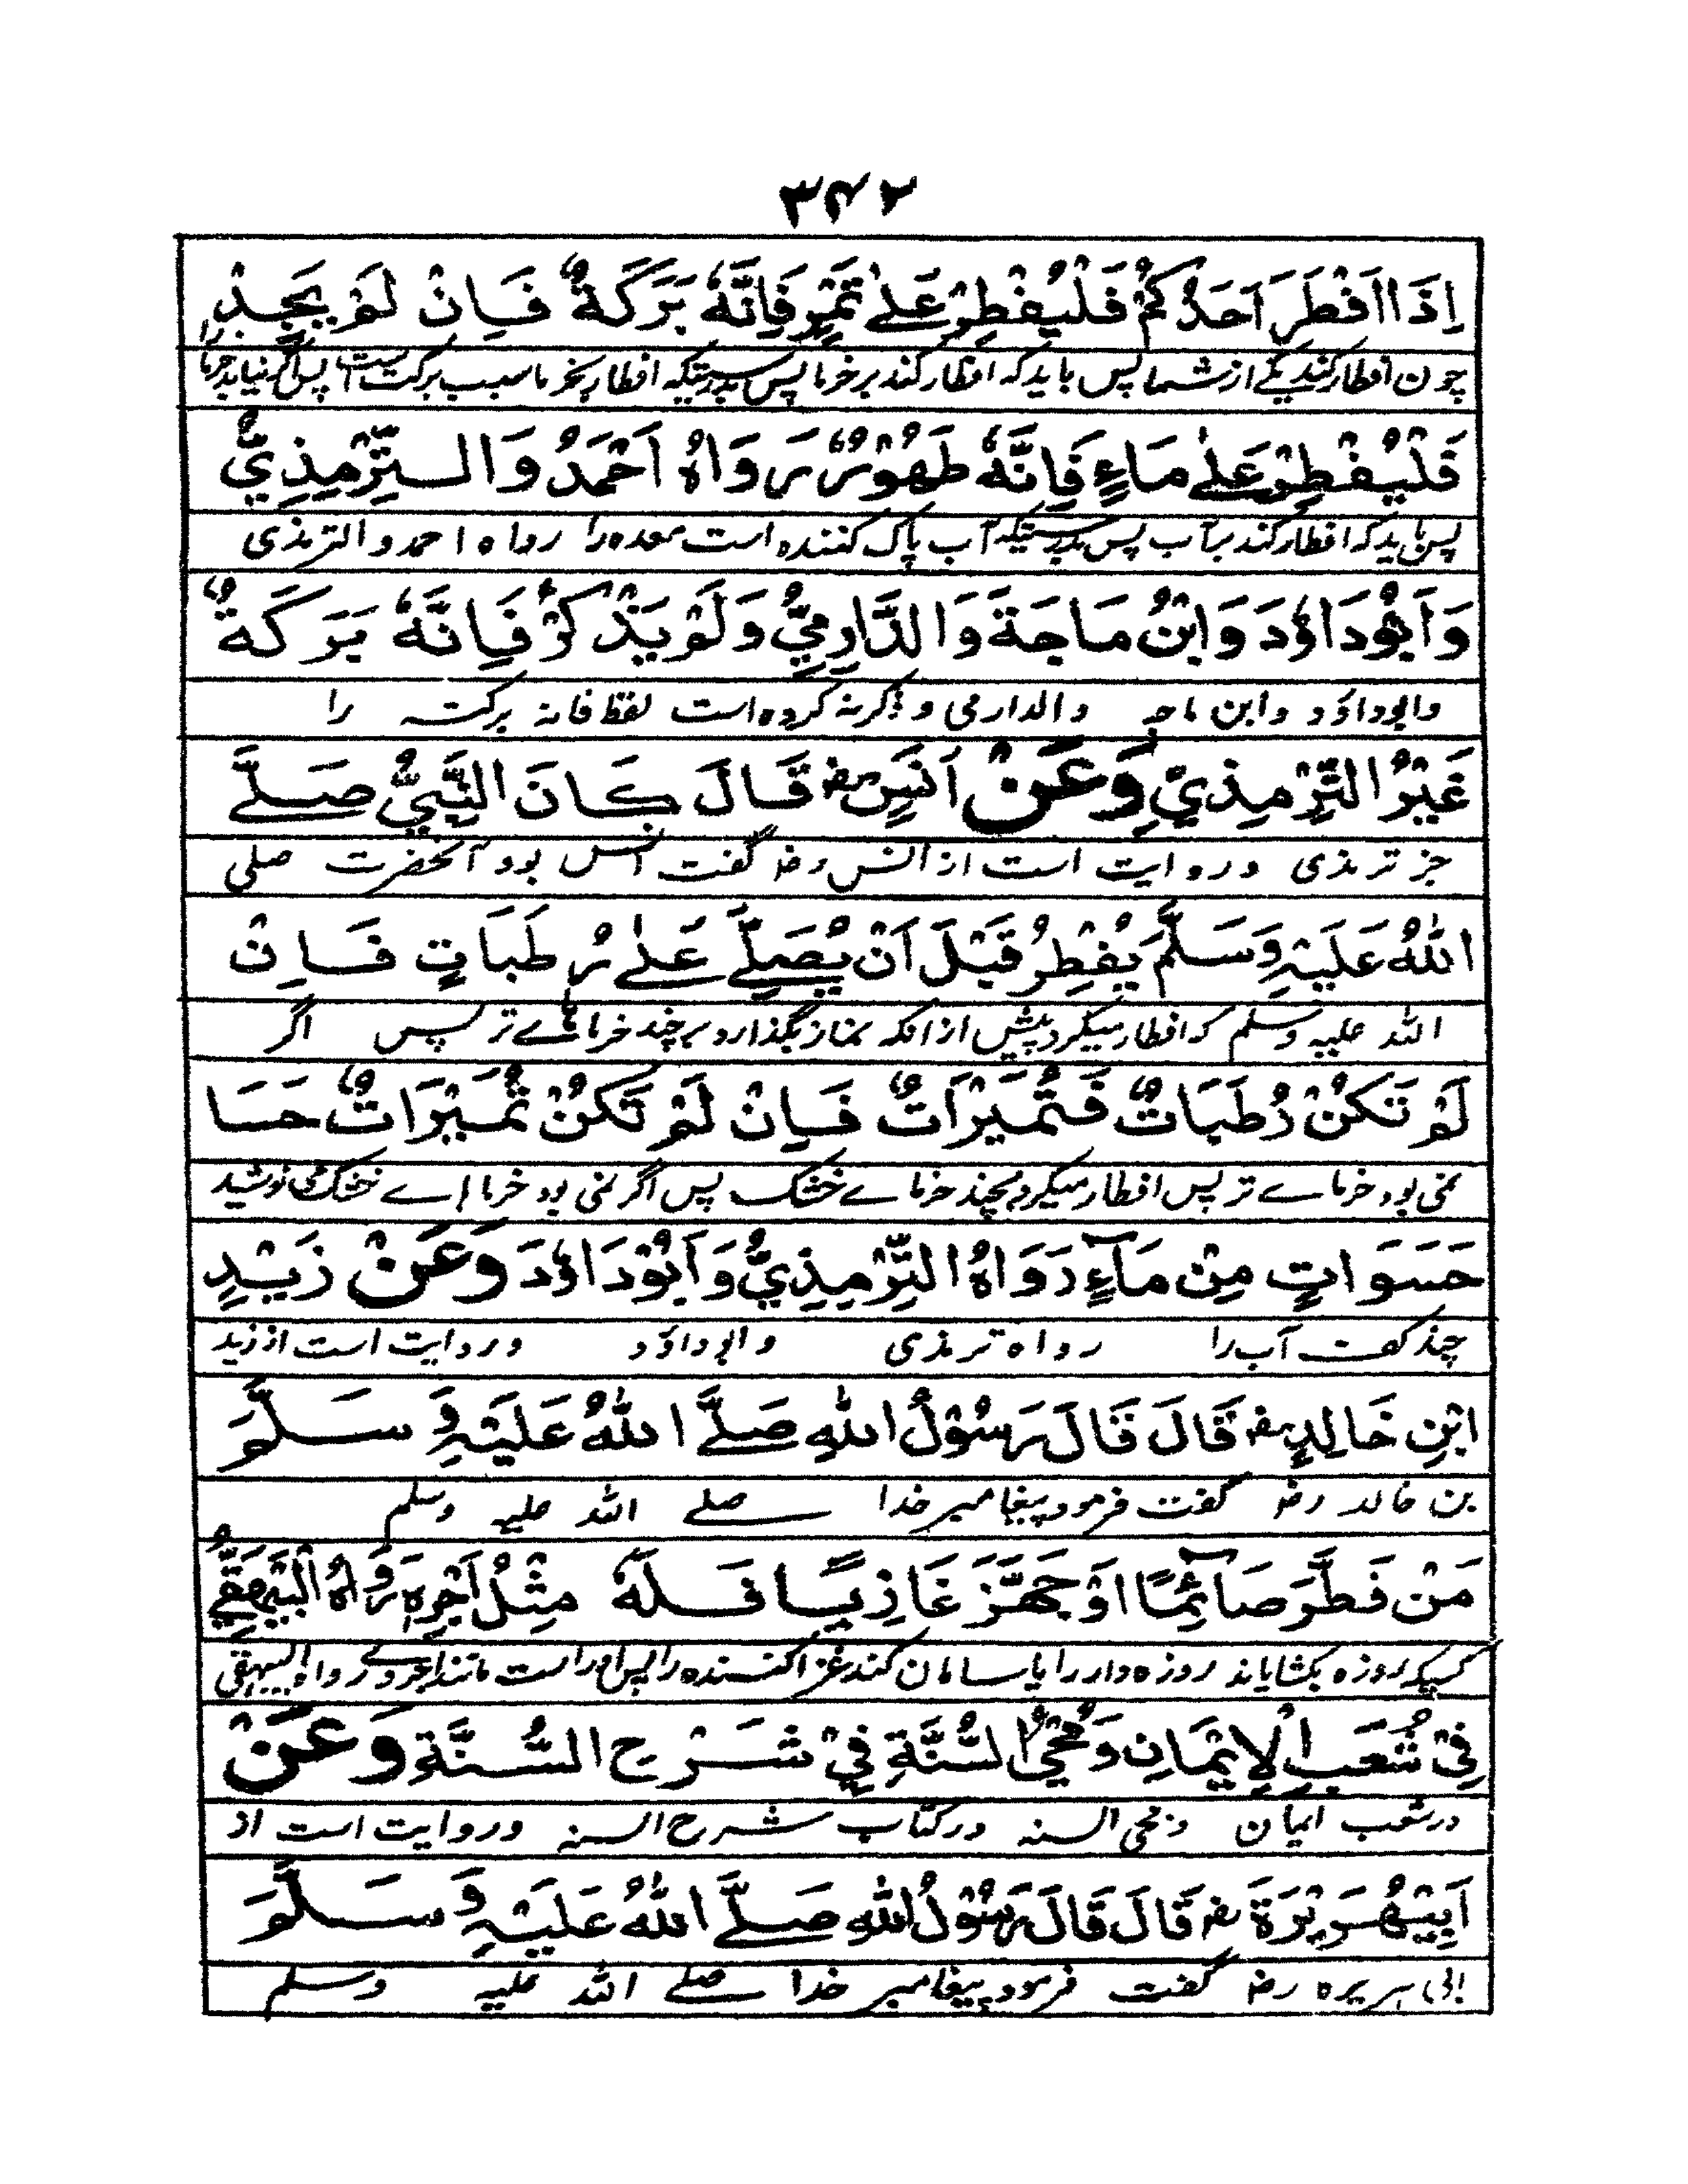 ۳۴۲
اِذَا اَفْطَرَ اَحَدُكُمْ فَلْيُفْطِرْ عَلٰى تَمْرٍ فَاِنَّهٗ بَرَكَةٌ فَاِنْ لَمْ يَجِدْ
چون افطار کند یکے از شما پس باید که افطار کند بر خرما پس بدرستیکه افطار بخرما سبب برکت است پس اگر نیابد خرما را
فَلْيُفْطِرْ عَلٰى مَاءٍ فَاِنَّهٗ طَهُوْرٌ رَوَاهُ اَحْمَدُ وَالتِّرْمِذِيُّ
پس باید که افطار کند بآب پس بدرستیکه آب پاک کننده است معده را رواه احمد و الترمذی
وَاَبُوْدَاوٗدَ وَابْنُ مَاجَةَ وَالدَّارِمِيُّ وَلَمْ يَذْكُرْ فَاِنَّهٗ بَرَكَةٌ
وابوداؤد وابن ماجہ والدارمی و ذکر نہ کرده است لفظ فانہ برکتہ را
غَيْرُ التِّرْمِذِيِّ وَعَنْ اَنَسٍ رض قَالَ كَانَ النَّبِيُّ صَلَّے
جز ترمذی و روایت است از انس رض گفت انس بود آنحضرت صلی
اللّٰهُ عَلَيْهِ وَسَلَّمَ يُفْطِرُ قَبْلَ اَنْ يُصَلِّے عَلٰے رُطَبَاتٍ فَاِنْ
اللہ علیہ وسلم کہ افطار میکرد پیش از انکہ نماز بگذارد بر چند خرماے تر پس اگر
لَمْ تَكُنْ رُطَبَاتٌ فَتُمَيْرَاتٌ فَاِنْ لَمْ تَكُنْ تُمَيْرَاتٌ حَسَا
نمی بود خرماے تر پس افطار میکرد بچند خرماے خشک پس اگر نمی بود خرما اے خشک می نوشید
حَسَوَاتٍ مِنْ مَآءٍ رَوَاهُ التِّرْمِذِيُّ وَاَبُوْدَاوٗدَ وَعَنْ زَيْدِ
چند کف آب را رواه ترمذی وابوداؤد و روایت است از زید
ابْنِ خَالِدٍ رض قَالَ قَالَ رَسُوْلُ اللّٰهِ صَلَّے اللّٰهُ عَلَيْهِ وَسَلَّمَ
بن خالد رض گفت فرمود پیغامبر خدا صلے اللہ علیہ وسلم
مَنْ فَطَّرَ صَائِمًا اَوْ جَهَّزَ غَازِيًا فَلَهٗ مِثْلُ اَجْرِهٖ رَوَاهُ الْبَيْهَقِيُّ
کسیکہ روزه بکشایاند روزه دار را یا سامان کند غزا کننده را پس او راست مانند اجر وے رواه البیہقی
فِيْ شُعَبِ الْاِيْمَانِ وَمُحْيُ السُّنَّةِ فِيْ شَرْحِ السُّنَّةِ وَعَنْ
در شعب ایمان و محی السنہ در کتاب شرح السنہ و روایت است از
اَبِيْهُرَيْرَةَ رض قَالَ قَالَ رَسُوْلُ اللّٰهِ صَلَّے اللّٰهُ عَلَيْهِ وَسَلَّمَ
ابی ہریره رض گفت فرمود پیغامبر خدا صلے اللہ علیہ وسلم